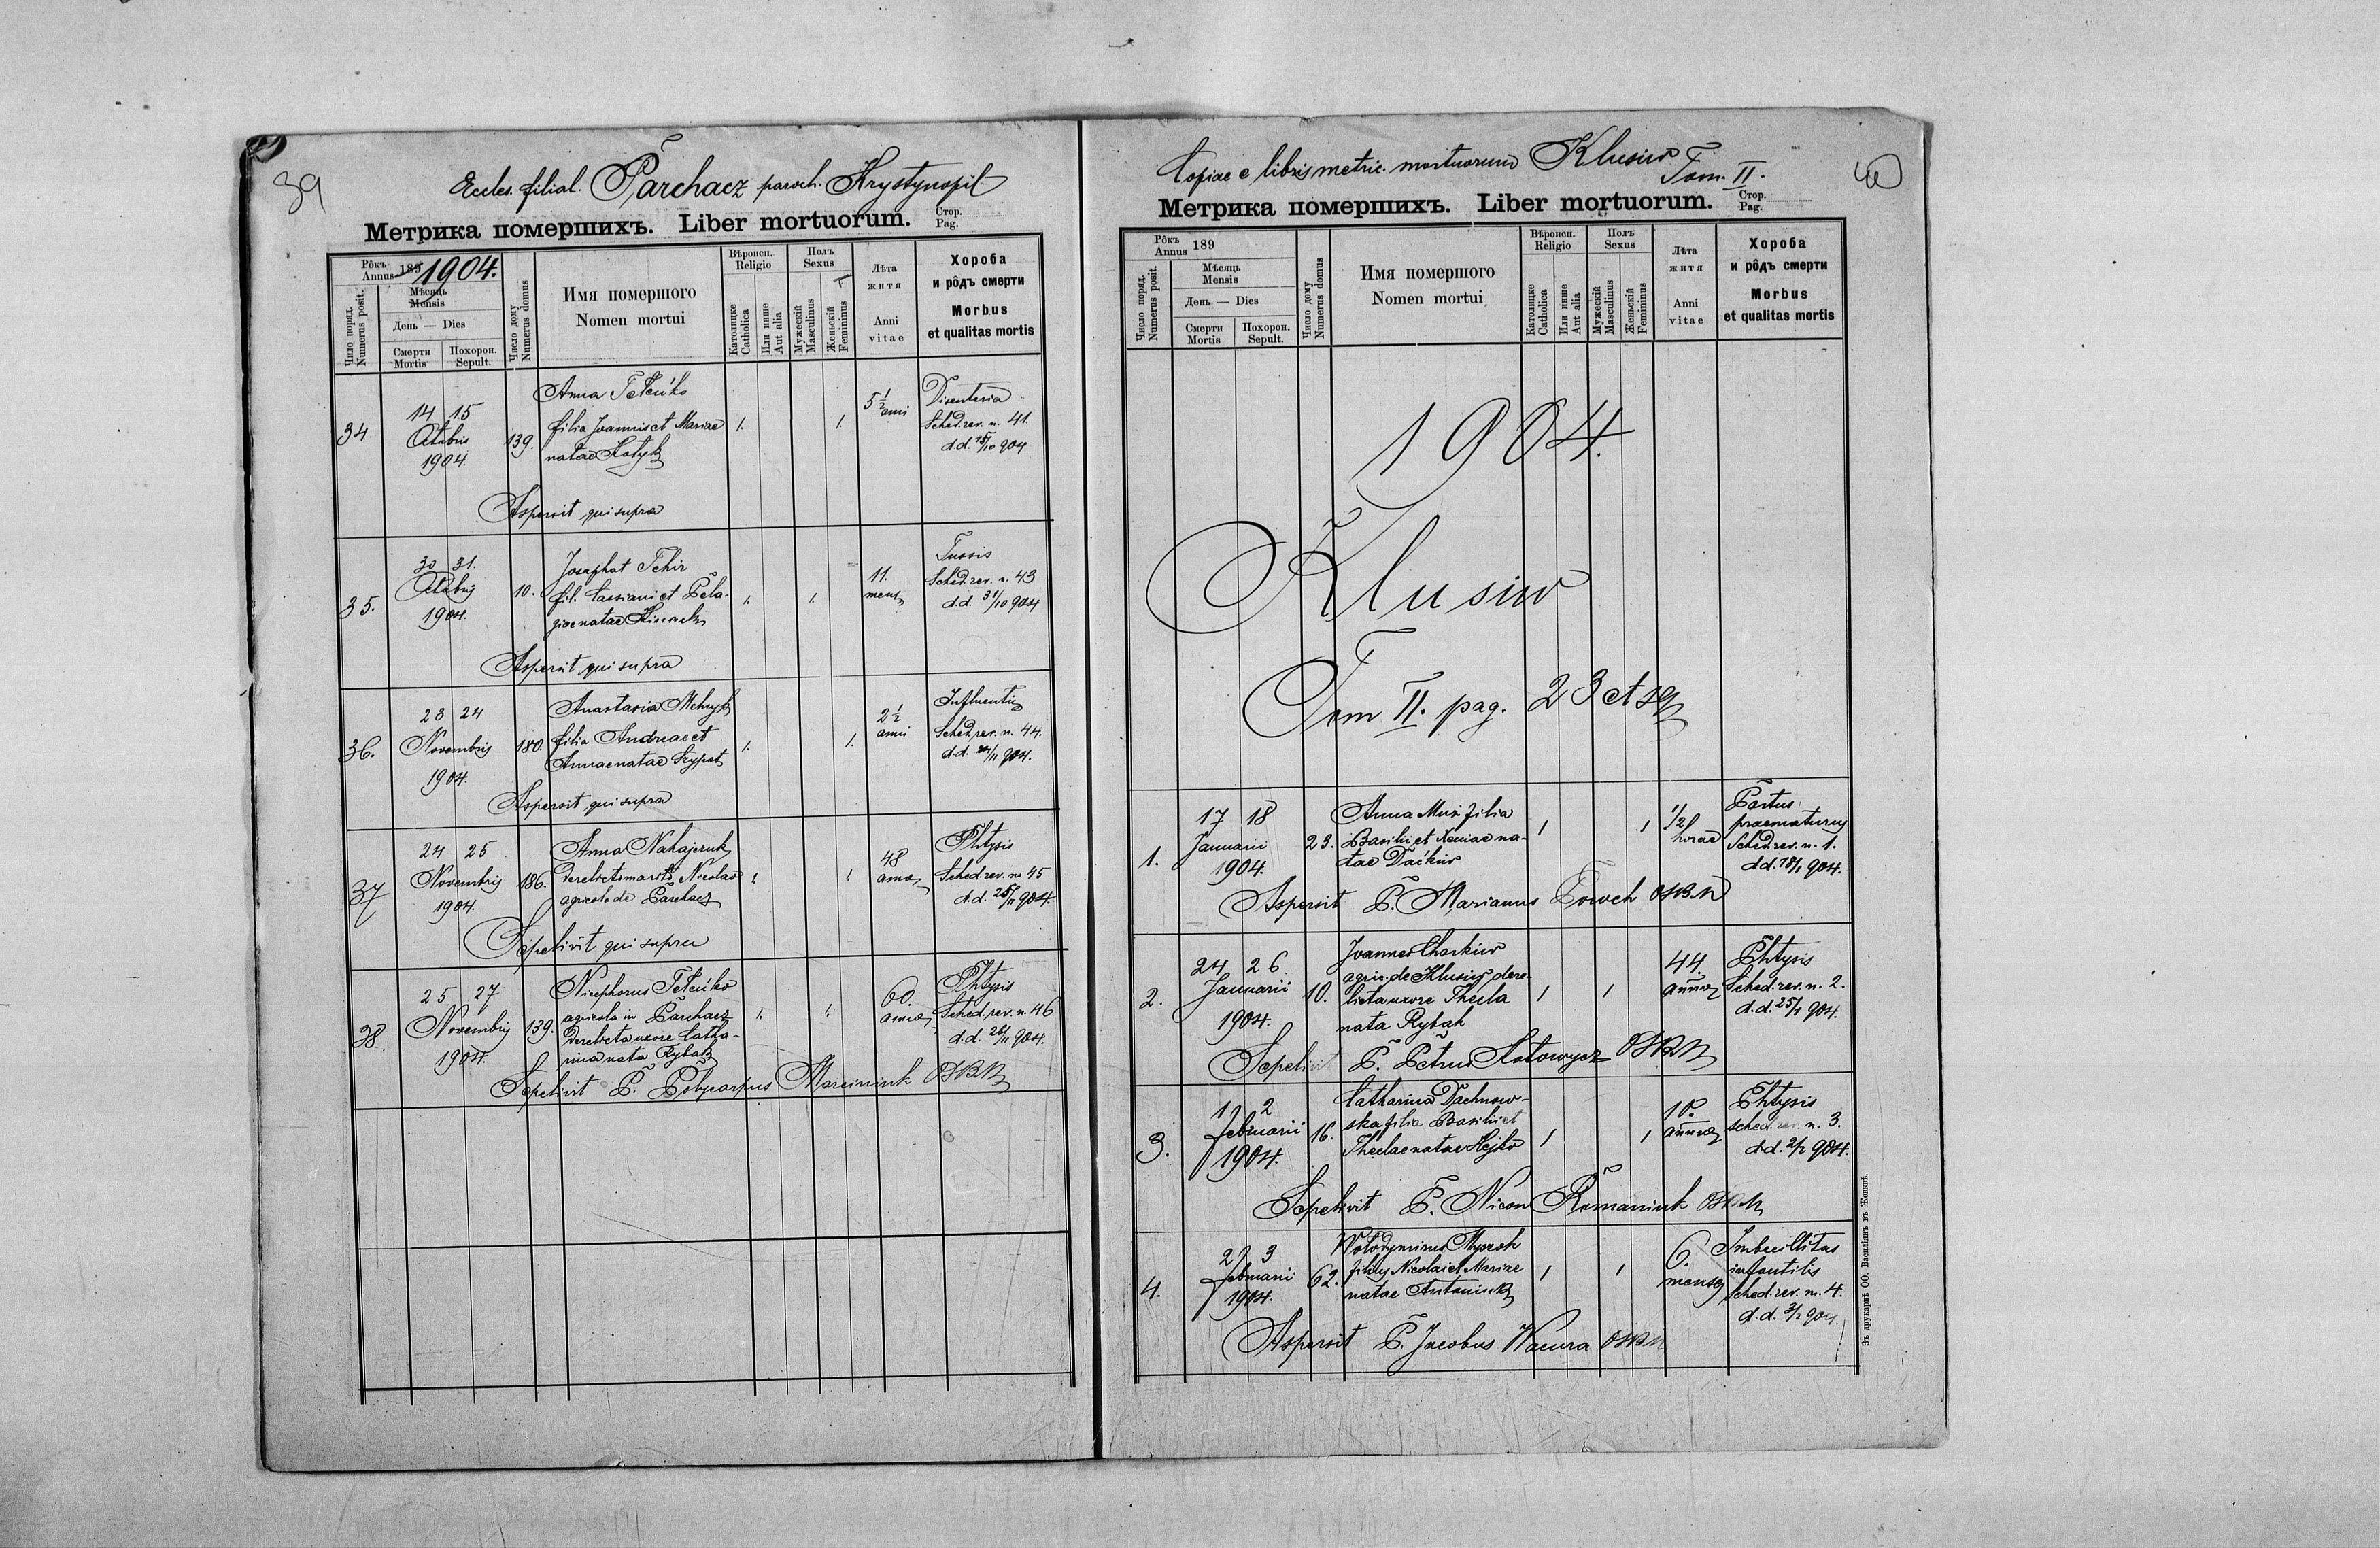 39
Eccles. filial. Parchacz paroch. Krystynopil
Метрика помершихъ. Liber mortuorum.
Стор.
Pag.
Рôкъ
Annus 189 1904.
Число поряд.
Numerus posit.
Мѣсяць
Mensis
День — Dies
Смерти
Mortis
Похорон.
Sepult.
Число дому
Numerus domus
Имя помершого
Nomen mortui
Вѣроисп.
Religio
Католицке
Catholica
Или инше
Aut alia
Полъ
Sexus
Мужескій
Masculinus
Женьскій
Femininus
Лѣта
житя
Anni
vitae
Хороба
и рôдъ смерти
Morbus
et qualitas mortis
34
14 15
Octobris
1904.
139.
Anna
filia Joannis et Mariae
natae Kotyk
1.
1.
5 1/2
anni
Disenteria
Sched. rev. n. 41.
d.d. 15/10 904
Aspersit qui supra
35.
30 31.
Octobris
1904.
10.
Josaphat Tchir
fil. Cassiani et Pela-
giae natae
1.
1.
11.
mens
Tussis
Sched. rev. n. 43
d.d. 31/10 904
Aspersit qui supra
36.
23 24
Novembris
1904.
180.
Anastasia
filia Andreae et
Annae natae
1.
1.
2 1/2
anni
Sched. rev. n. 44.
d.d. 24/11 904.
Aspersit qui supra
37
24 25
Novembris
1904.
186.
Anna Nahajczuk
derelicto marito Nicolao
agricola de Parchacz
1.
1.
48
annos
Phtysis
Sched. rev. no 45
d.d. 25/11 904.
Sepelivit qui supra
38
25 27
Novembris
1904.
139.
Nicephorus
agricola in Parchacz
derelicta uxore Catha-
rina nata Rybak
1.
1.
60.
annos
Phtysis
Sched. rev. n. 46
d.d. 26/11 904.
Sepelivit P. Polycarpus Marciniuk OSBM
40
Copiae e libris metric. mortuorum Klusiw
Tom. II.
Метрика помершихъ. Liber mortuorum.
Стор.
Pag.
Рôкъ
Annus 189
Число поряд.
Numerus posit.
Мѣсяць
Mensis
День — Dies
Смерти
Mortis
Похорон.
Sepult.
Число дому
Numerus domus
Имя помершого
Nomen mortui
Вѣроисп.
Religio
Католицке
Catholica
Или инше
Aut alia
Полъ
Sexus
Мужескій
Masculinus
Женьскій
Femininus
Лѣта
житя
Anni
vitae
Хороба
и рôдъ смерти
Morbus
et qualitas mortis
1904.
Klusiw
Tom II. pag. 23 et sq
1.
17 18
Januarii
1904.
23.
Anna Muz filia
Basilii et Xeniae na-
tae Daćkiw
1
1
1/2
horae
Partus
praematurus
Sched. rev. n. 1.
d.d. 18/1 904.
Aspersit P. Marianus Powch OSBM
2.
24 26
Januarii
1904.
10.
Joannes Charkiw
agric. de Klusiw dere-
licta uxore Thecla
nata Rybak
1
1
44.
annos
Phtysis
Sched. rev. n. 2.
d.d. 25/1 904.
Sepelivit P. Petrus Kotowycz OSBM
3.
1 2
februarii
1904.
16.
Catharina Dachnow-
ska filia Basilii et
Theclae natae Hejko
1
1
10.
annos
Phtysis
sched. rev. n. 3.
d.d. 2/2 904.
Sepelivit P. Nicon Romaniuk OSBM
4.
2 3
februarii
1904.
62.
Wołodymirus Myroch
filius Nicolai et Mariae
natae Antoniuk
1
1
6.
menses
Imbecilitas
infantilis
sched. rev. n. 4.
d.d. 3/2 904.
Aspersit P. Jacobus Wacura OSBM
Зъ друкарнѣ ОО. Василіянъ въ Жовквѣ.